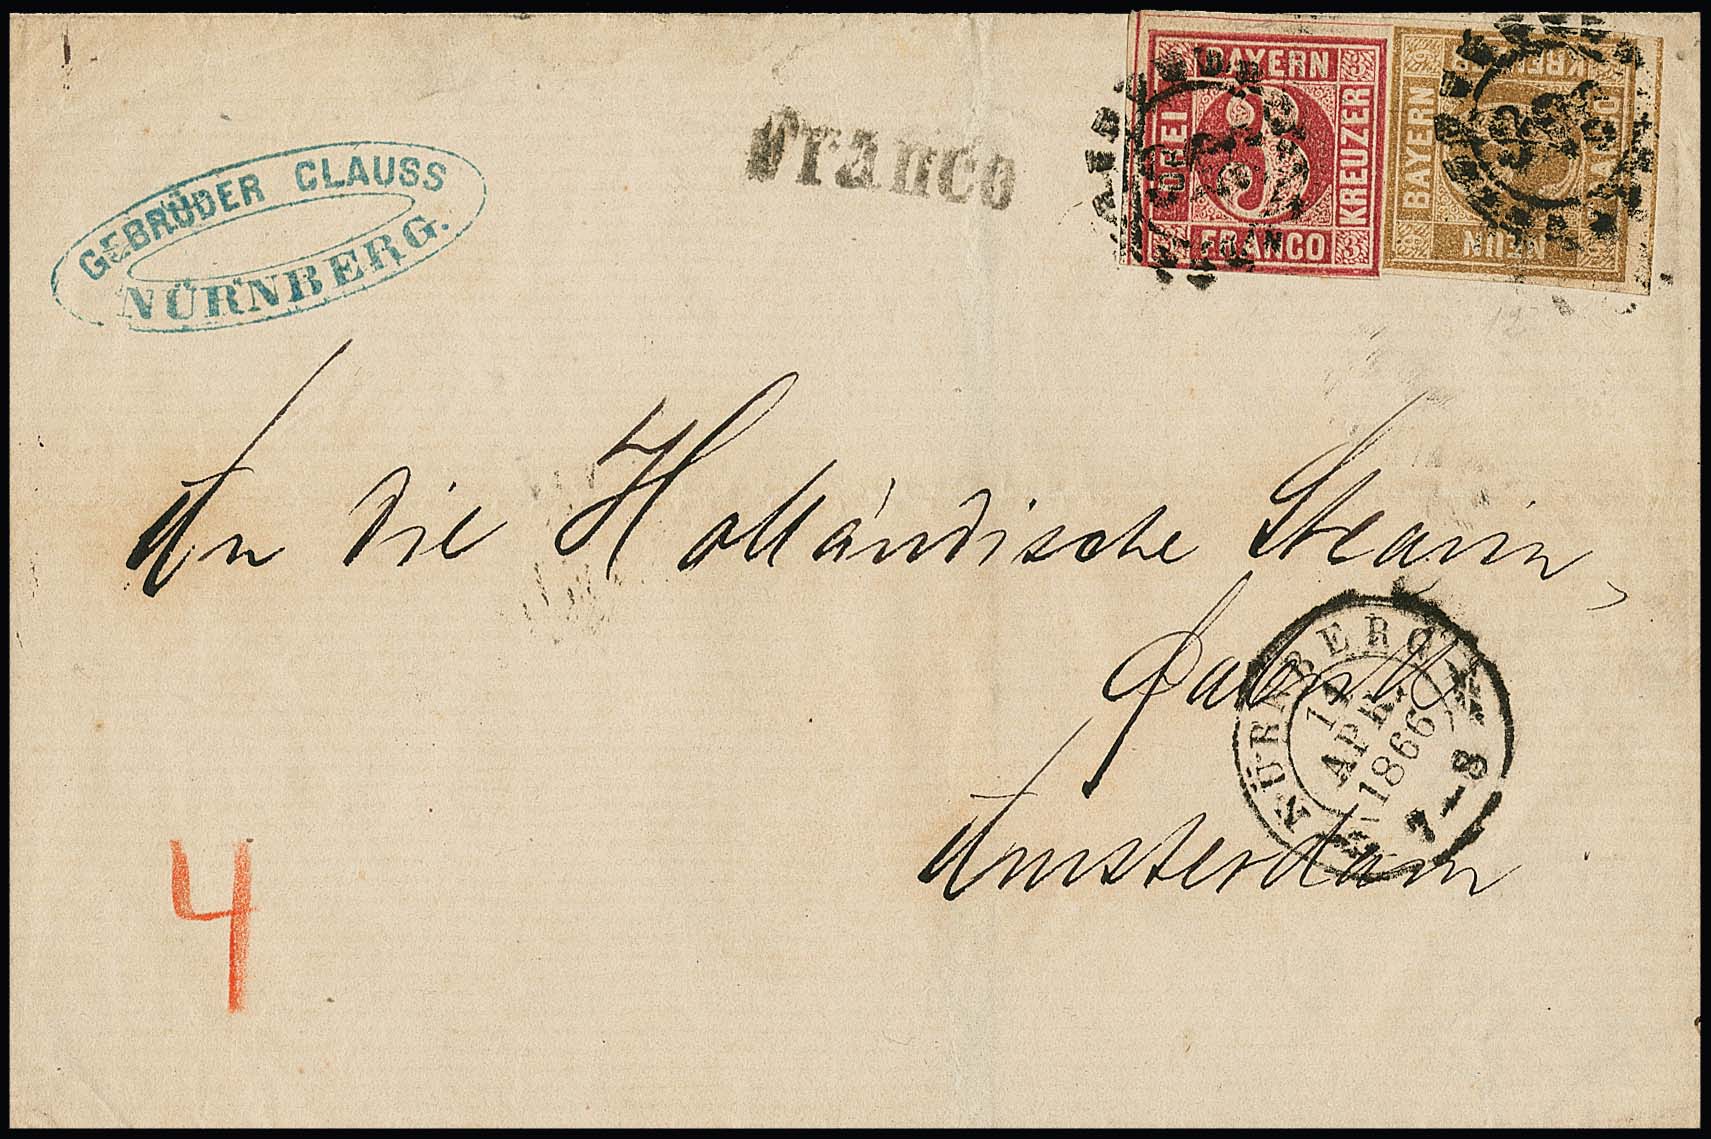 GEBRÜDER CLAUSS
NÜRNBERG.
Franco
BAYERN
DREI
3
KREUZER
FRANCO
BAYERN
KREUZER
NEUN
FRANCO
12
An die Holländische Stearin
Fabrik
Amsterdam
NÜRNBERG
APR.
1866
7-8
4